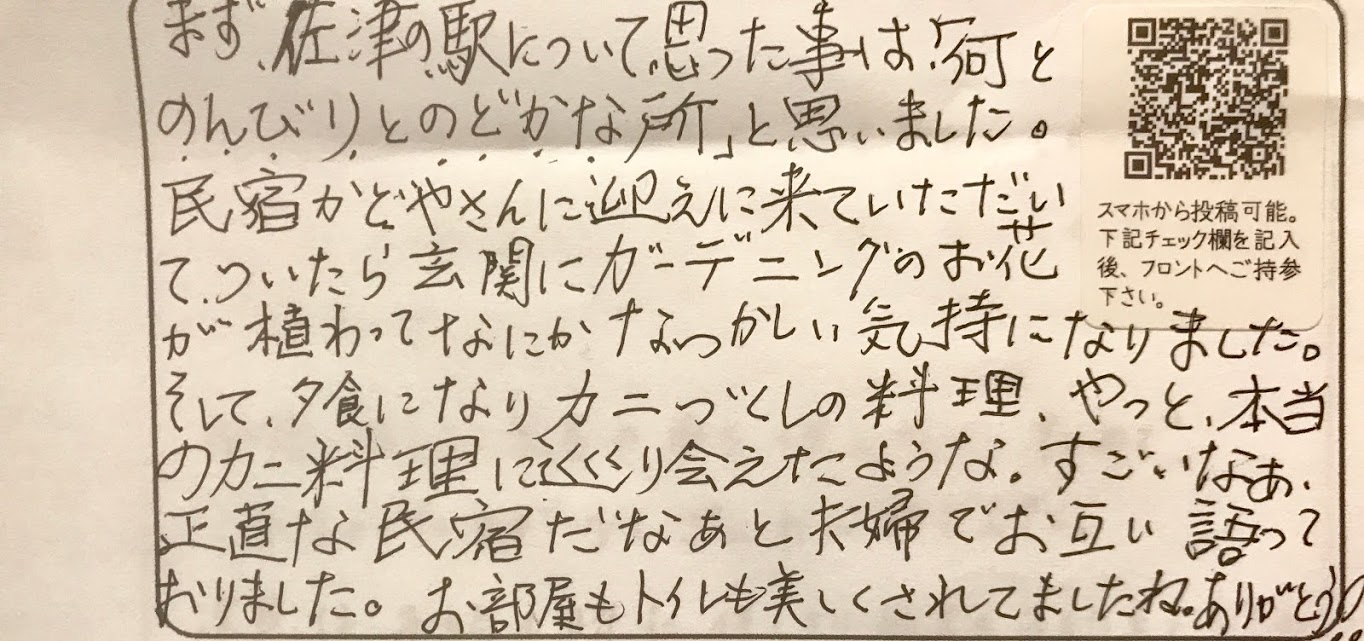 まず、佐津の駅について思った事は、「何と
のんびりとのどかな所」と思いました。
民宿かどやさんに迎えに来ていただい
て、ついたら玄関にガーデニングのお花
が植わってなにかなつかしい気持になりました。
そして、夕食になりカニづくしの料理、やっと、本当
のカニ料理に巡くり会えたような。すごいなあ、
正直な民宿だなぁと夫婦でお互い語って
おりました。お部屋もトイレも美しくされてましたね。ありがとう!
スマホから投稿可能。
下記チェック欄を記入
後、フロントへご持参
下さい。